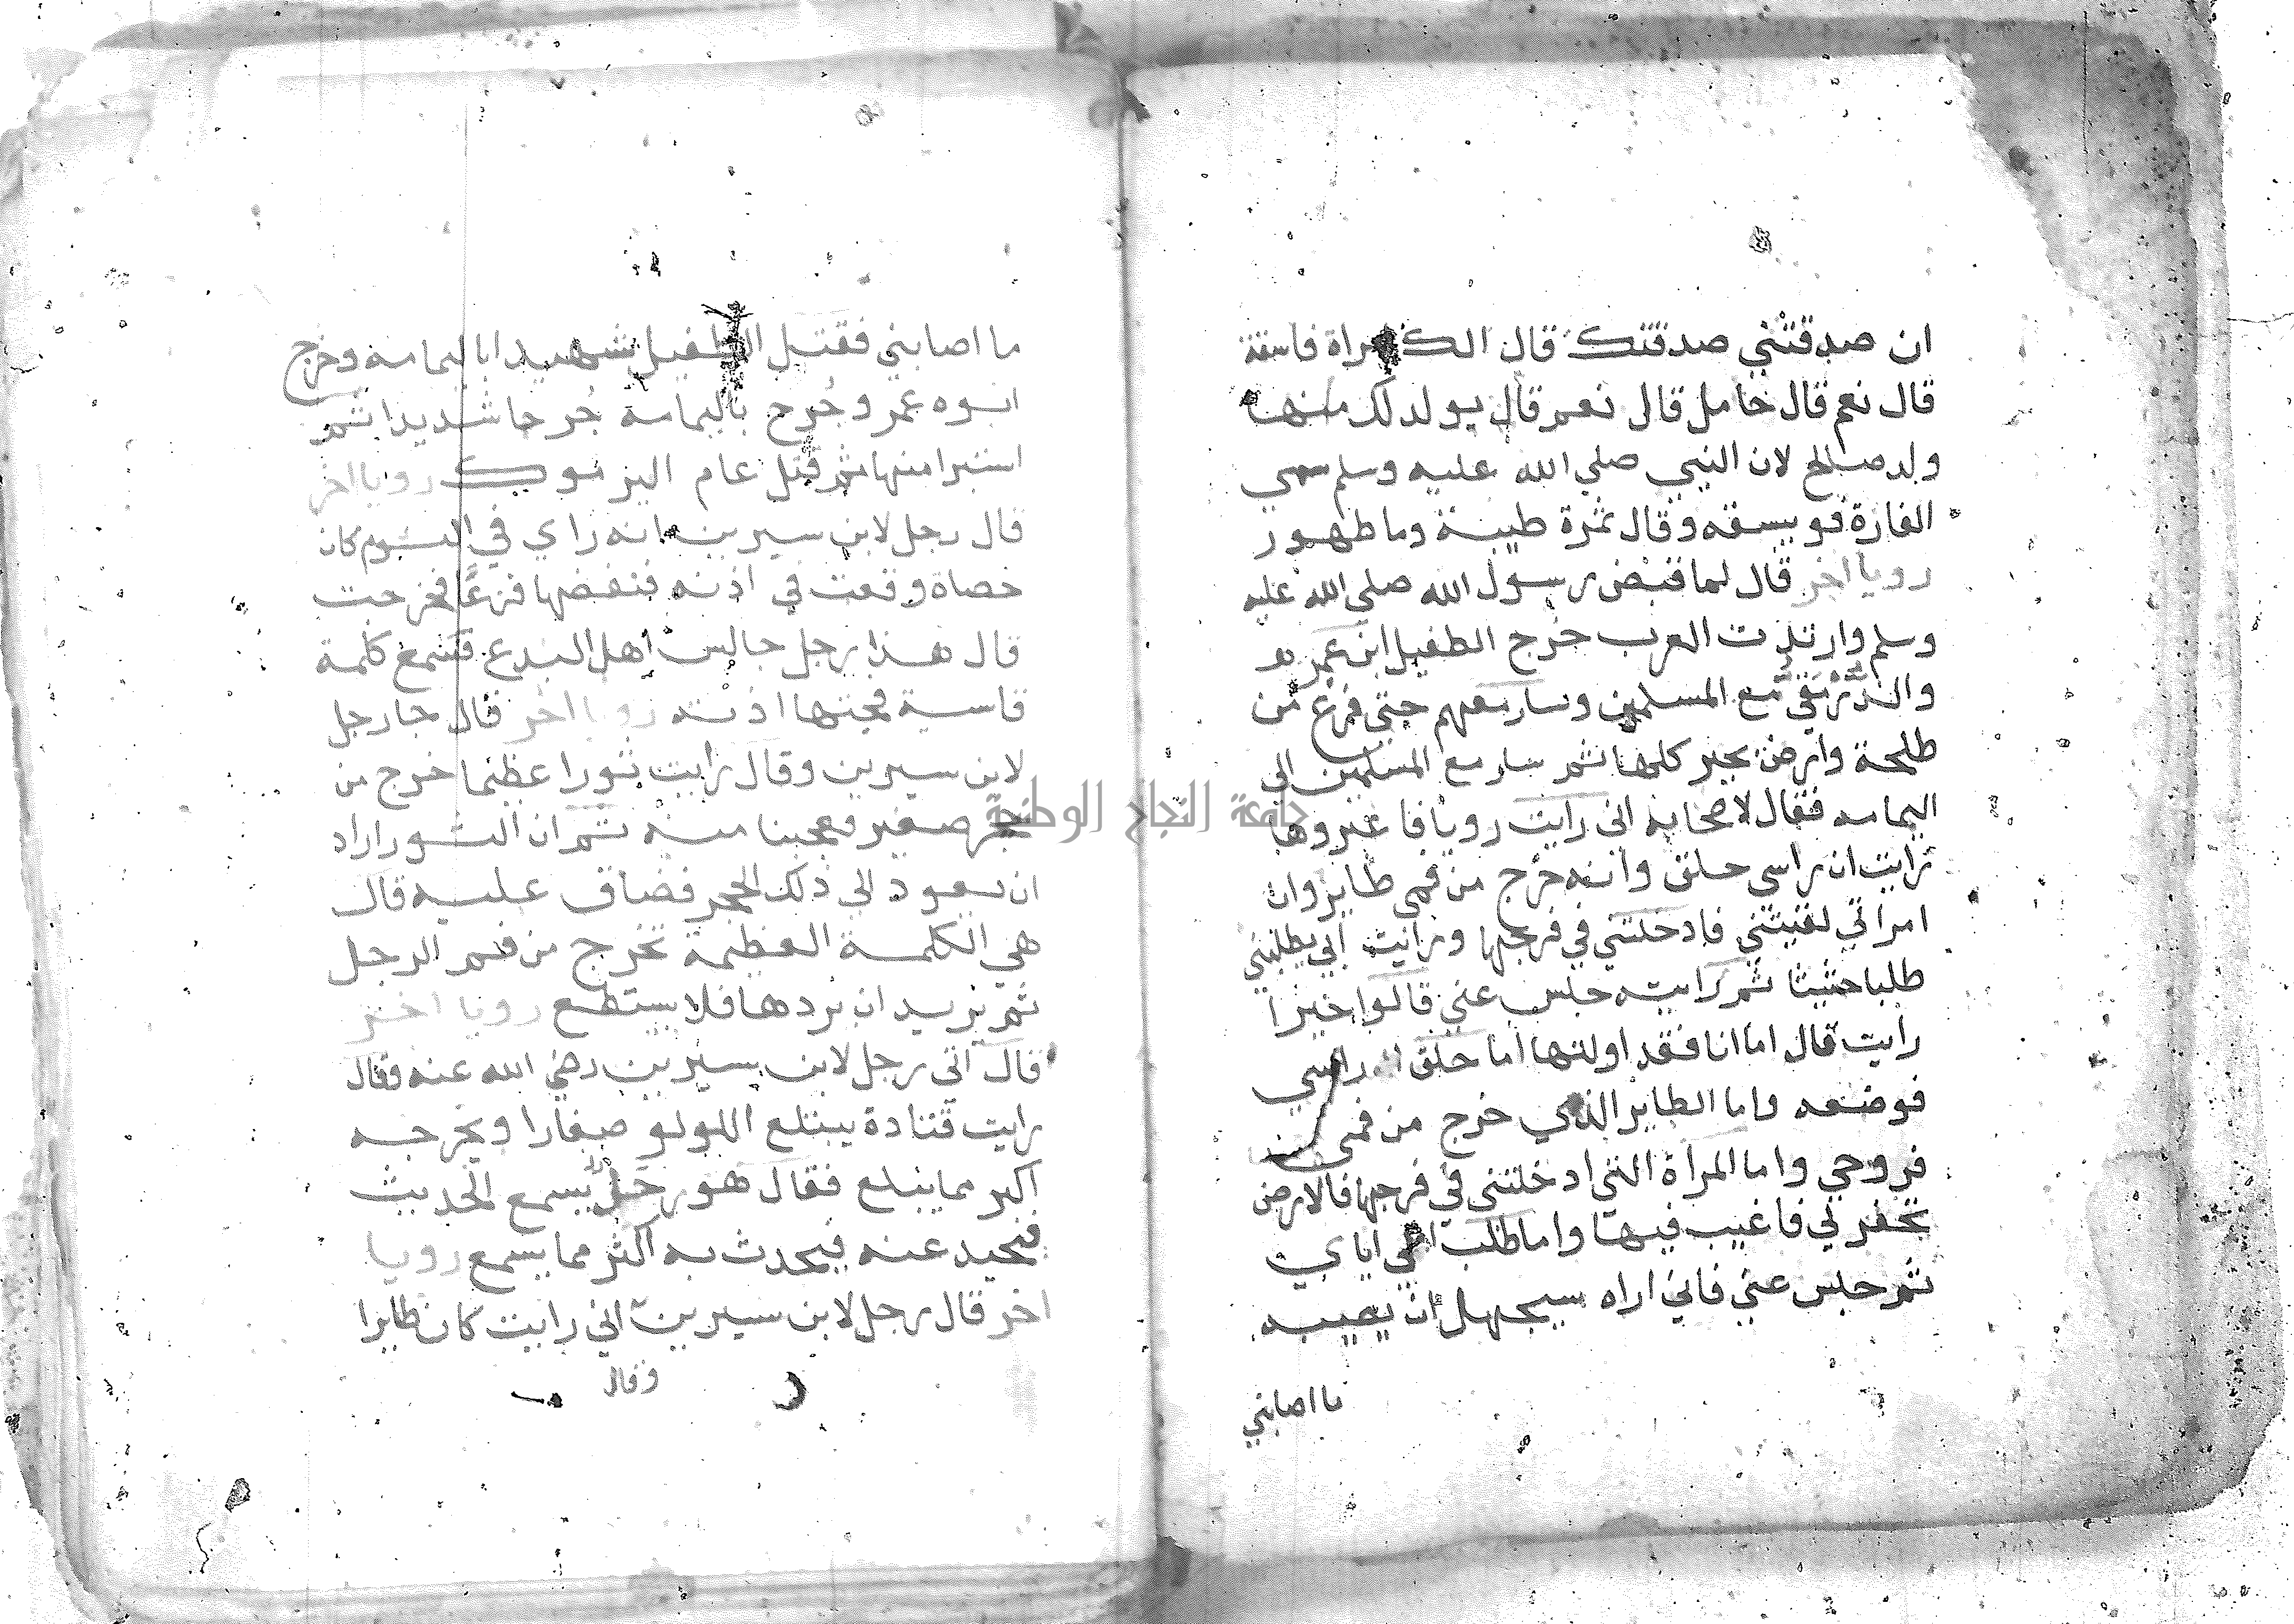 ان صدقتني صدقتك قال الك امراة فاسقة
قال نعم قال حامل قال نعم قال يولد لك منها
ولد صالح لان النبي صلي الله عليه وسلم سمي
الفارة فويسقه وقال تمرة طيبة وما طهور
رويا اخر قال لما قبض رسول الله صلي الله عليه
وسلم وارتدت العرب خرج الطفيل ابن عمر
مع المسلمين وسار معهم حتي فرغ من
طلحة وارض كلها ثم سار مع المسلمين الي
اليمامه فقال لاصحابه اني رايت رويا فاعبروها
رايت ان راسي حلق وانه خرج من فمي طاير وان
امراتي لقيتني فادخلتني في فرجها ورايت ابي يطلبني
طلبا حثيثا ثم رايته حبس عني قالوا خيرا
رايت قال اما انا فقد اولتها اما حلق راسي
فوضعه واما الطاير الذي خرج من فمي
فروحي واما المراة التي ادخلتني في فرجها فالارض
تحفر لي فاغيب فيها واما طلب ابي اياي
ثم حبس عني فاني اراه سيجهل ان يصيبه
ما اصابني
ما اصابني فقتل الطفيل شهيدا باليمامه وخرج
ابوه عمر وجرح باليمامه جرحا شديدا ثم
استبرا منها ثم قتل عام اليرموك رويا اخر
قال رجل لابن سيرين انه راي في النوم كان
حصاة وقعت في اذنه فنفضها فزعا فخرجت
قال هذا رجل جالس اهل البدع فسمع كلمة
قاسية فمجتها اذنه رويا اخر قال جا رجل
لابن سيرين وقال رايت ثورا عظيما خرج من
حجر صغير فعجبنا منه ثم ان الثور اراد
ان يعود الي ذلك الحجر فضاق عليه قال
هي الكلمة العظيمة تخرج من فم الرجل
ثم يريد ان يردها فلا يستطع رويا اخر
قال اتي رجل لابن سيرين رضي الله عنه وقال
رايت قتادة يبتلع اللولو صغارا ويخرجه
اكبر مما يبلع فقال هو رجل يسمع الحديث
عنه فيحدث به اكثر مما يسمع رويا
اخر قال رجل لابن سيرين اني رايت كان طايرا
وقال
جامعة النجاح الوطنية